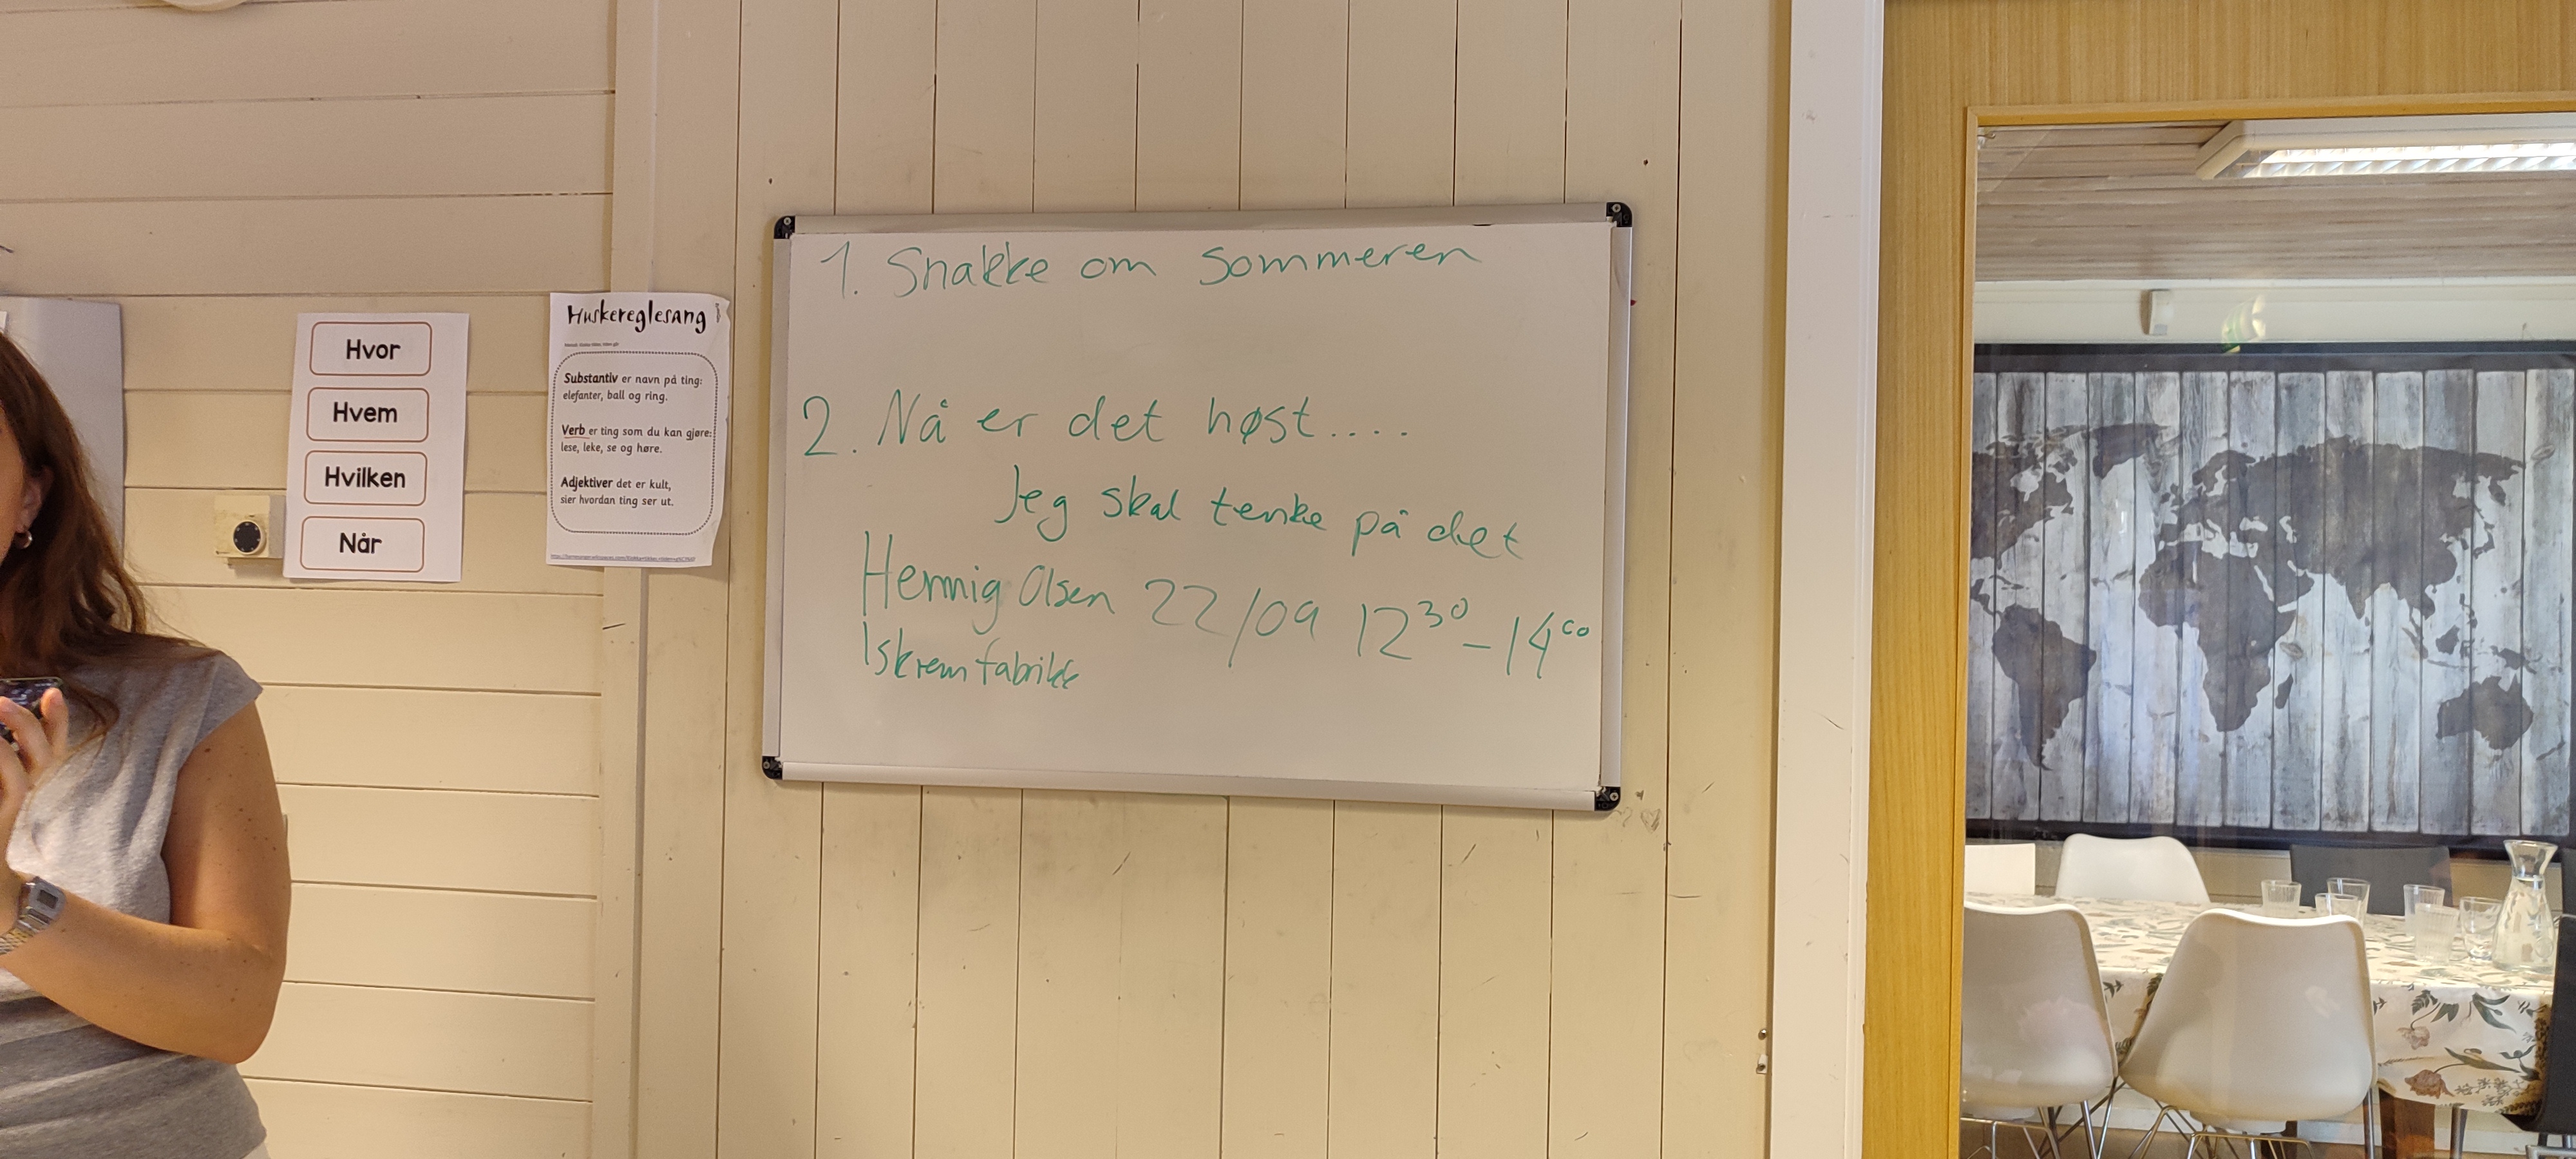 Hvor
Hvem
Hvilken
Når
Huskereglesang
Substantiv er navn på ting:
elefanter, ball og ring.
Verb er ting som du kan gjøre:
lese, leke, se og høre.
Adjektiver det er kult,
sier hvordan ting ser ut.
1. Snakke om sommeren
2. Nå er det høst....
Jeg skal tenke på det
Hennig Olsen 22/09 12³⁰-14⁰⁰
Iskremfabrikk